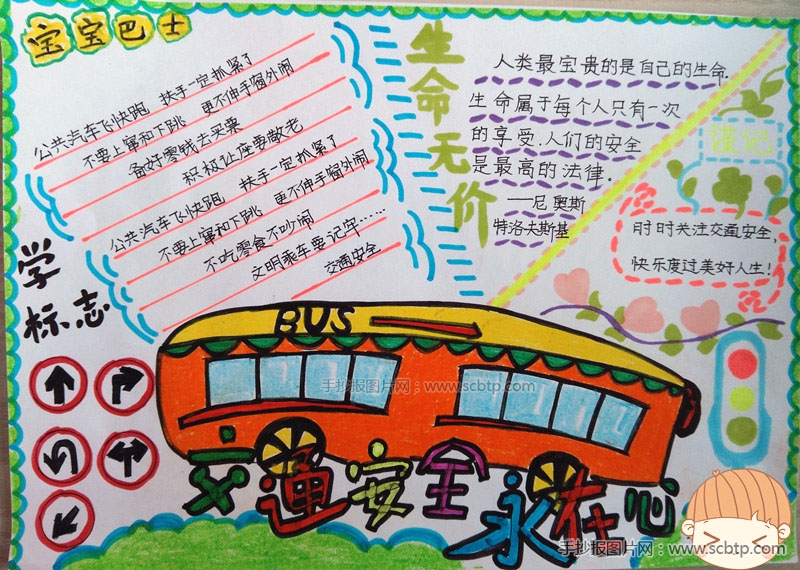 宝宝巴士
公共汽车飞快跑 扶手一定抓紧了
不要上窜和下跳 更不伸手窗外闹
备好零钱去买票
积极让座要敬老
公共汽车飞快跑 扶手一定抓紧了
不要上窜和下跳 更不伸手窗外闹
不吃零食不吵闹
文明乘车要记牢……
交通安全
生命无价
人类最宝贵的是自己的生命.
生命属于每个人只有一次
的享受.人们的安全
是最高的法律.
——尼奥斯
特洛夫斯基
谨记
时时关注交通安全,
快乐度过美好人生!
学
标志
BUS
手抄报图片网:www.scbtp.com
交通安全永在心
手抄报图片网:www.scbtp.com